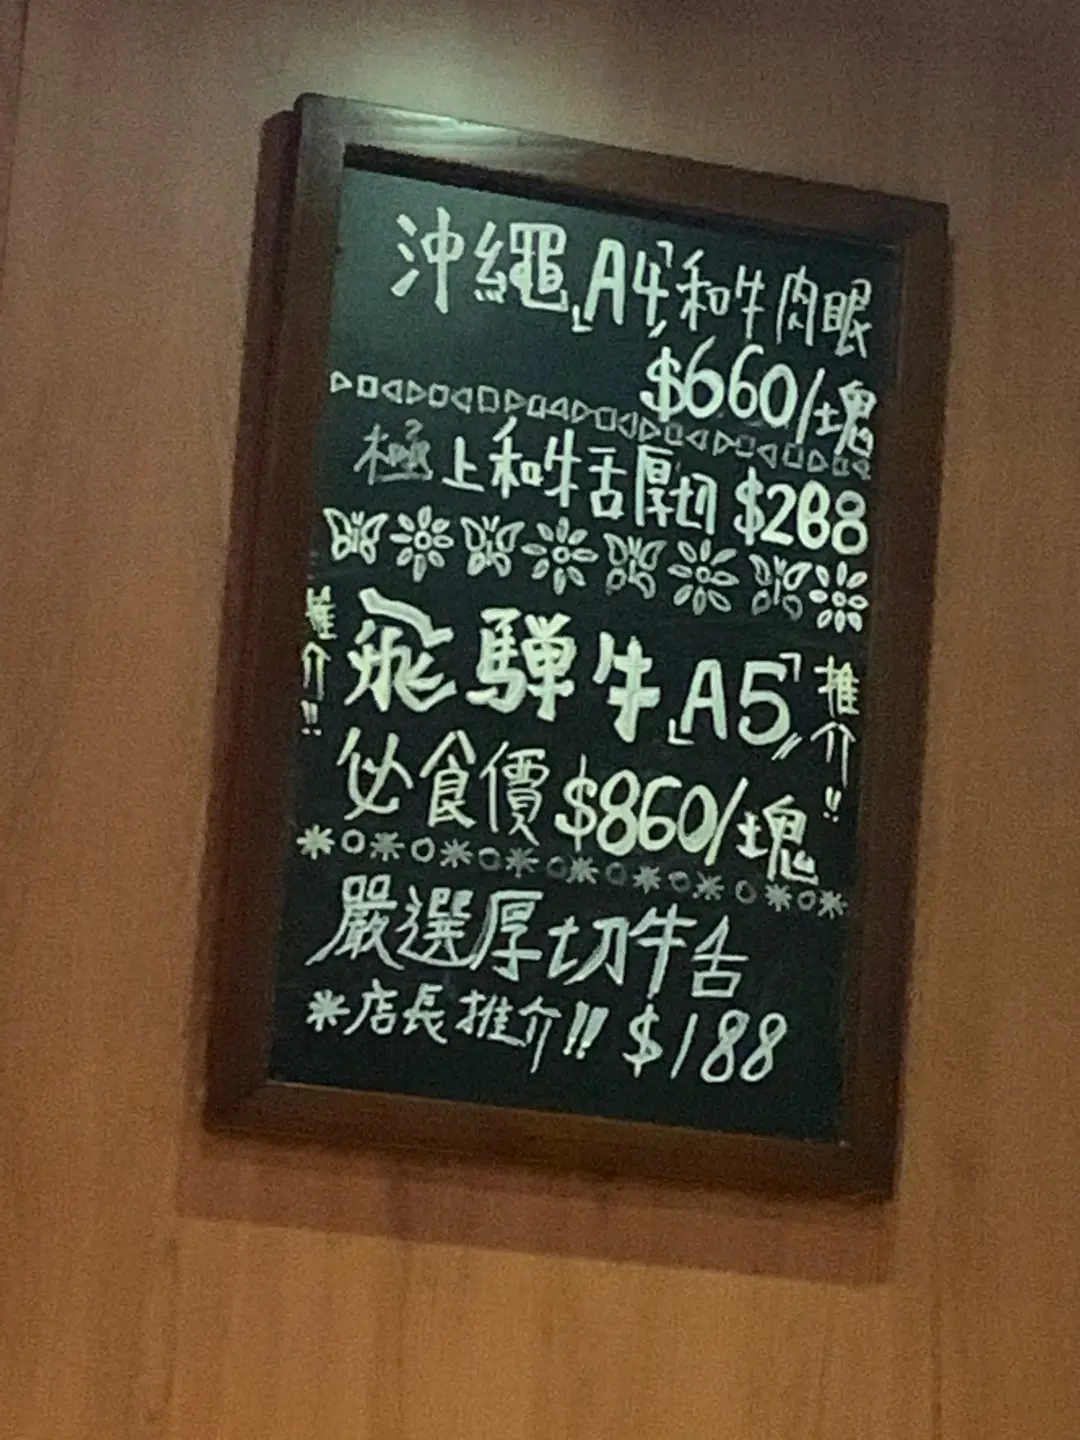 沖繩「A4」和牛肉眼
$660/塊
極上和牛舌厚切 $288
推介!!
飛驒牛「A5」
推介!!
必食價 $860/塊
嚴選厚切牛舌
*店長推介!! $188